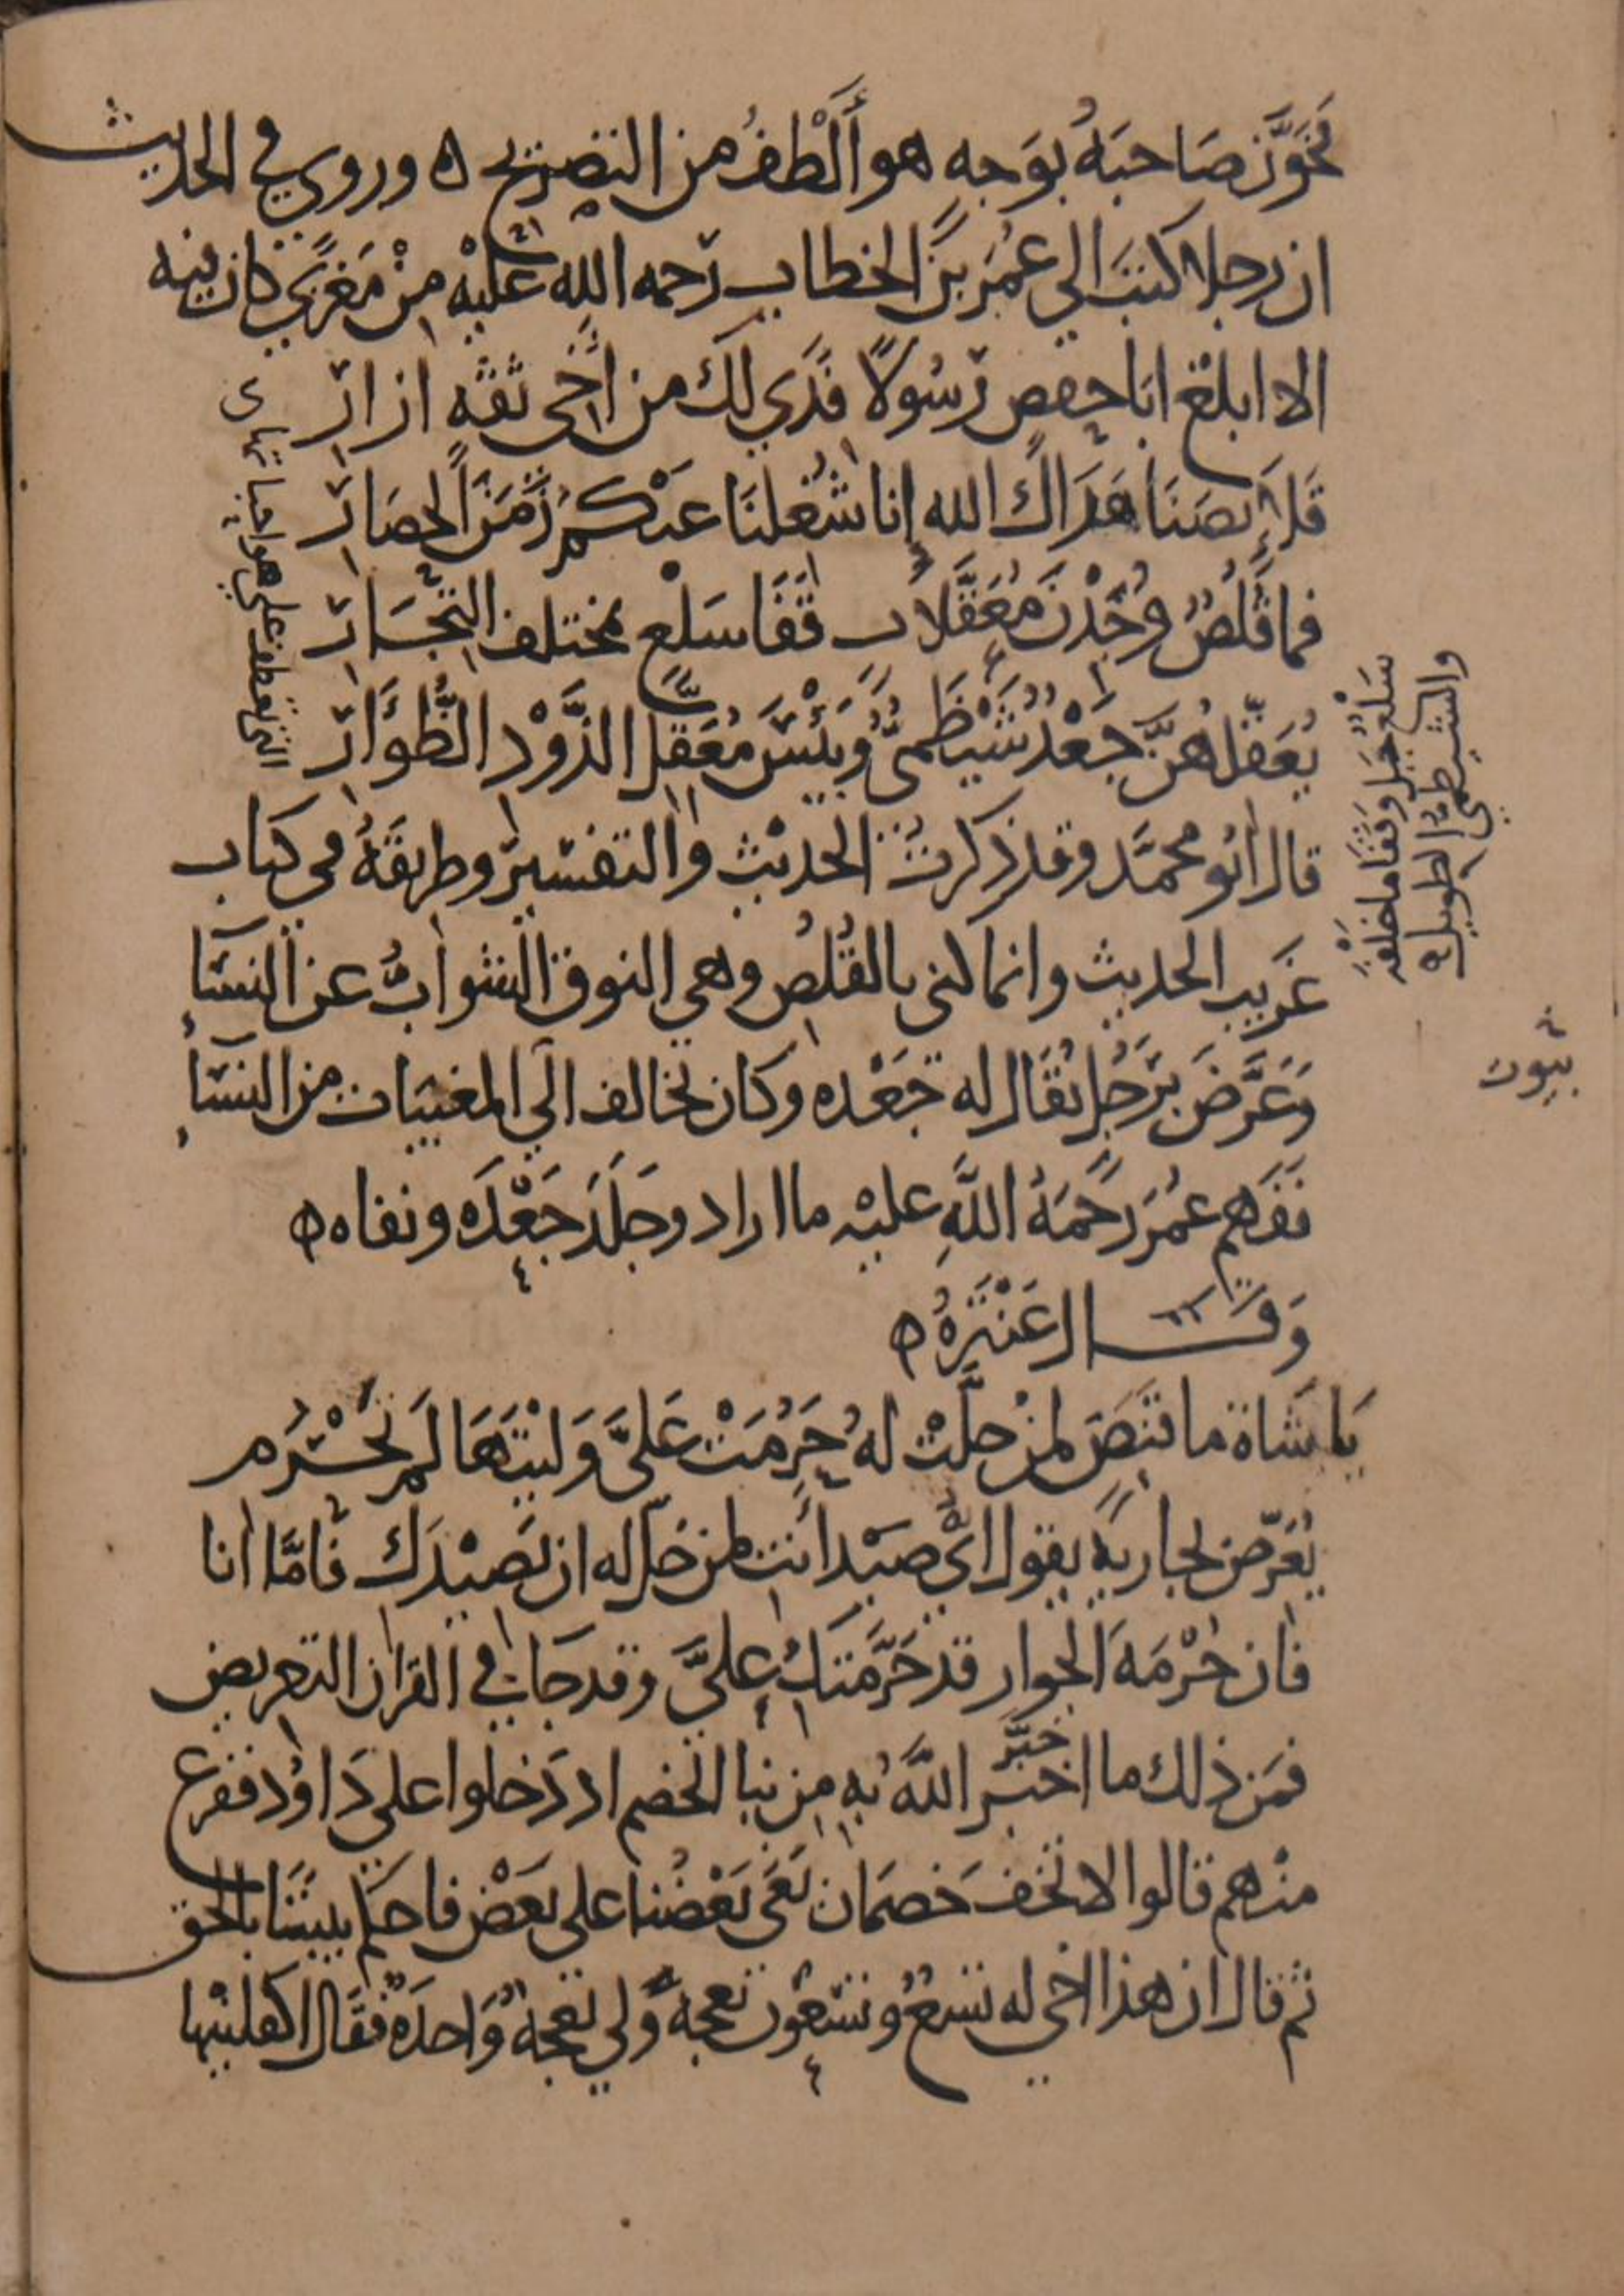 تخوّن صَاحبَهُ بوَجهٍ هو أَلْطفُ من التصريح ه وروي في الحديث
ان رجلا كتبَ الي عُمَر بن الخطاب رَحمه اللهِ عليْهِ مِنْ مَغزًى كان فيه
الا ابلغ ابَا حفصٍ رَسُولاً فدًي لك من اخي ثقه ازارِ
قلَائِصَنَا هَدَاك الله إنا شُغلنَا عنكُم زَمَنَ الحصَارِ
فما قُلُصٌ وُجِدْنَ مُعَقَّلاتٍ قَفَا سَلْعٍ بمختلف التِّجَارِ
يُعَقِّلهُنَّ جَعْدٌ شَيْظَمىٌّ وَبئْسَ مُعَقِّل الذَّوْدِ الظُّؤَارِ
قال ابُو محمَّد وقد ذكرتُ الحديْث والتفسير وطريقَهُ في كتاب
غَريب الحديث وانما كنى بالقُلُصِ وهي النوق الشوابُّ عن النسَآءِ
وَعَرَّضَ برَجُلٍ يُقَال له جَعْده وكان يخالف الَي المغيبَات من النسَآءِ
فَفَهِم عُمَر رَحْمَةُ اللهِ عليْه ما اراد وجَلَدَ جَعْدَه ونفاه ه
وَقَال عَنْتَرَهُ ه
يَا شَاة ما قنَصٍ لمن حلّت لهُ حَرُمَتْ عَليَّ وَليْتَهَا لَم تَحْرُم
يُعَرّض لجاريةٍ يقول ايُّ صيْد انتِ لمن حلّ له ان يَصيْدَك فامَّا انا
فان حُرْمَةَ الجوار قد حَرَّمَتكِ عليَّ وقد جَا في القران التعريض
فمَن ذلك ما اخبَر اللهُ بهِ مِن نبا الخصم اد دَخلوا علي دَاوُد ففزع
خبَّر
منهم قالوا لا تخَف خَصمَان بَغَى بَعْضُنا على بَعْضٍ فاحكم بيننَا بالحق
ثم قال ان هذا اخي له تسْعٌ وتسْعُون نعجةً ولي نعجةٌ وَاحدَةٌ فقَال اكفلنيها
سَلْعٌ جَبَل وقفَا ما خلفه
والشيظميّ الطويل ه
بيوت